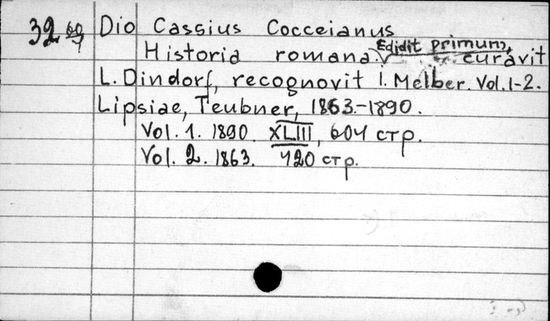 32 60/7 Dio Cassius Cocceianus
Historia romana. Edidit primum, curavit
L. Dindorf, recognovit I. Melber. Vol. 1-2.
Lipsiae, Teubner, 1863-1890.
Vol. 1. 1890. XLIII, 604 стр.
Vol. 2. 1863. 420 стр.